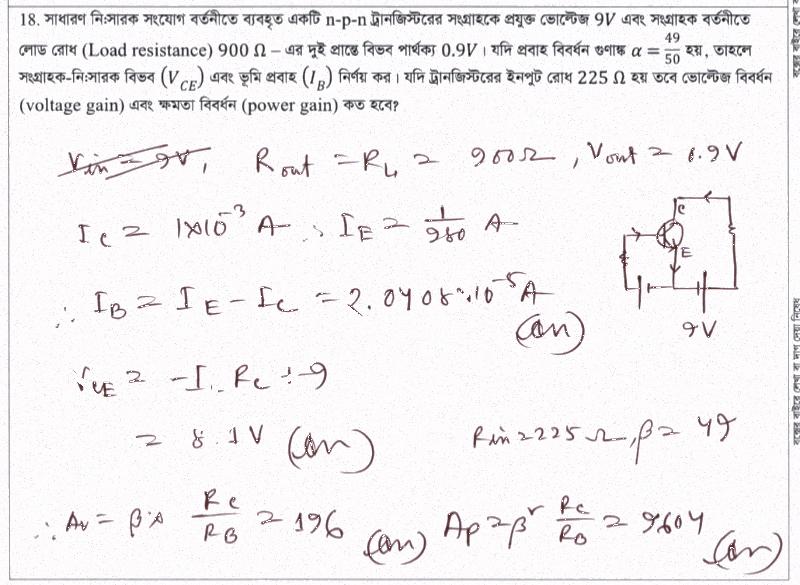 18. সাধারণ নিঃসারক সংযোগ বর্তনীতে ব্যবহৃত একটি n-p-n ট্রানজিস্টরের সংগ্রাহকে প্রযুক্ত ভোল্টেজ 9V এবং সংগ্রাহক বর্তনীতে
লোড রোধ (Load resistance) 900 Ω – এর দুই প্রান্তে বিভব পার্থক্য 0.9V । যদি প্রবাহ বিবর্ধন গুণাঙ্ক α = 49/50 হয়, তাহলে
সংগ্রাহক-নিঃসারক বিভব (V_CE) এবং ভূমি প্রবাহ (I_B) নির্ণয় কর। যদি ট্রানজিস্টরের ইনপুট রোধ 225 Ω হয় তবে ভোল্টেজ বিবর্ধন
(voltage gain) এবং ক্ষমতা বিবর্ধন (power gain) কত হবে?
V_in = 9V, R_out = R_L = 900Ω, V_out = 0.9V
I_C = 1×10^-3 A ∴ I_E = 1/980 A
C
E
∴ I_B = I_E – I_C = 2.0408×10^-5 A
(Ans)
9V
V_CE = –I_C R_C + 9
= 8.1V (Ans)
R_in = 225 Ω, β = 49
∴ A_v = β × R_C/R_B = 196 (Ans)
A_p = β² R_C/R_B = 9604 (Ans)